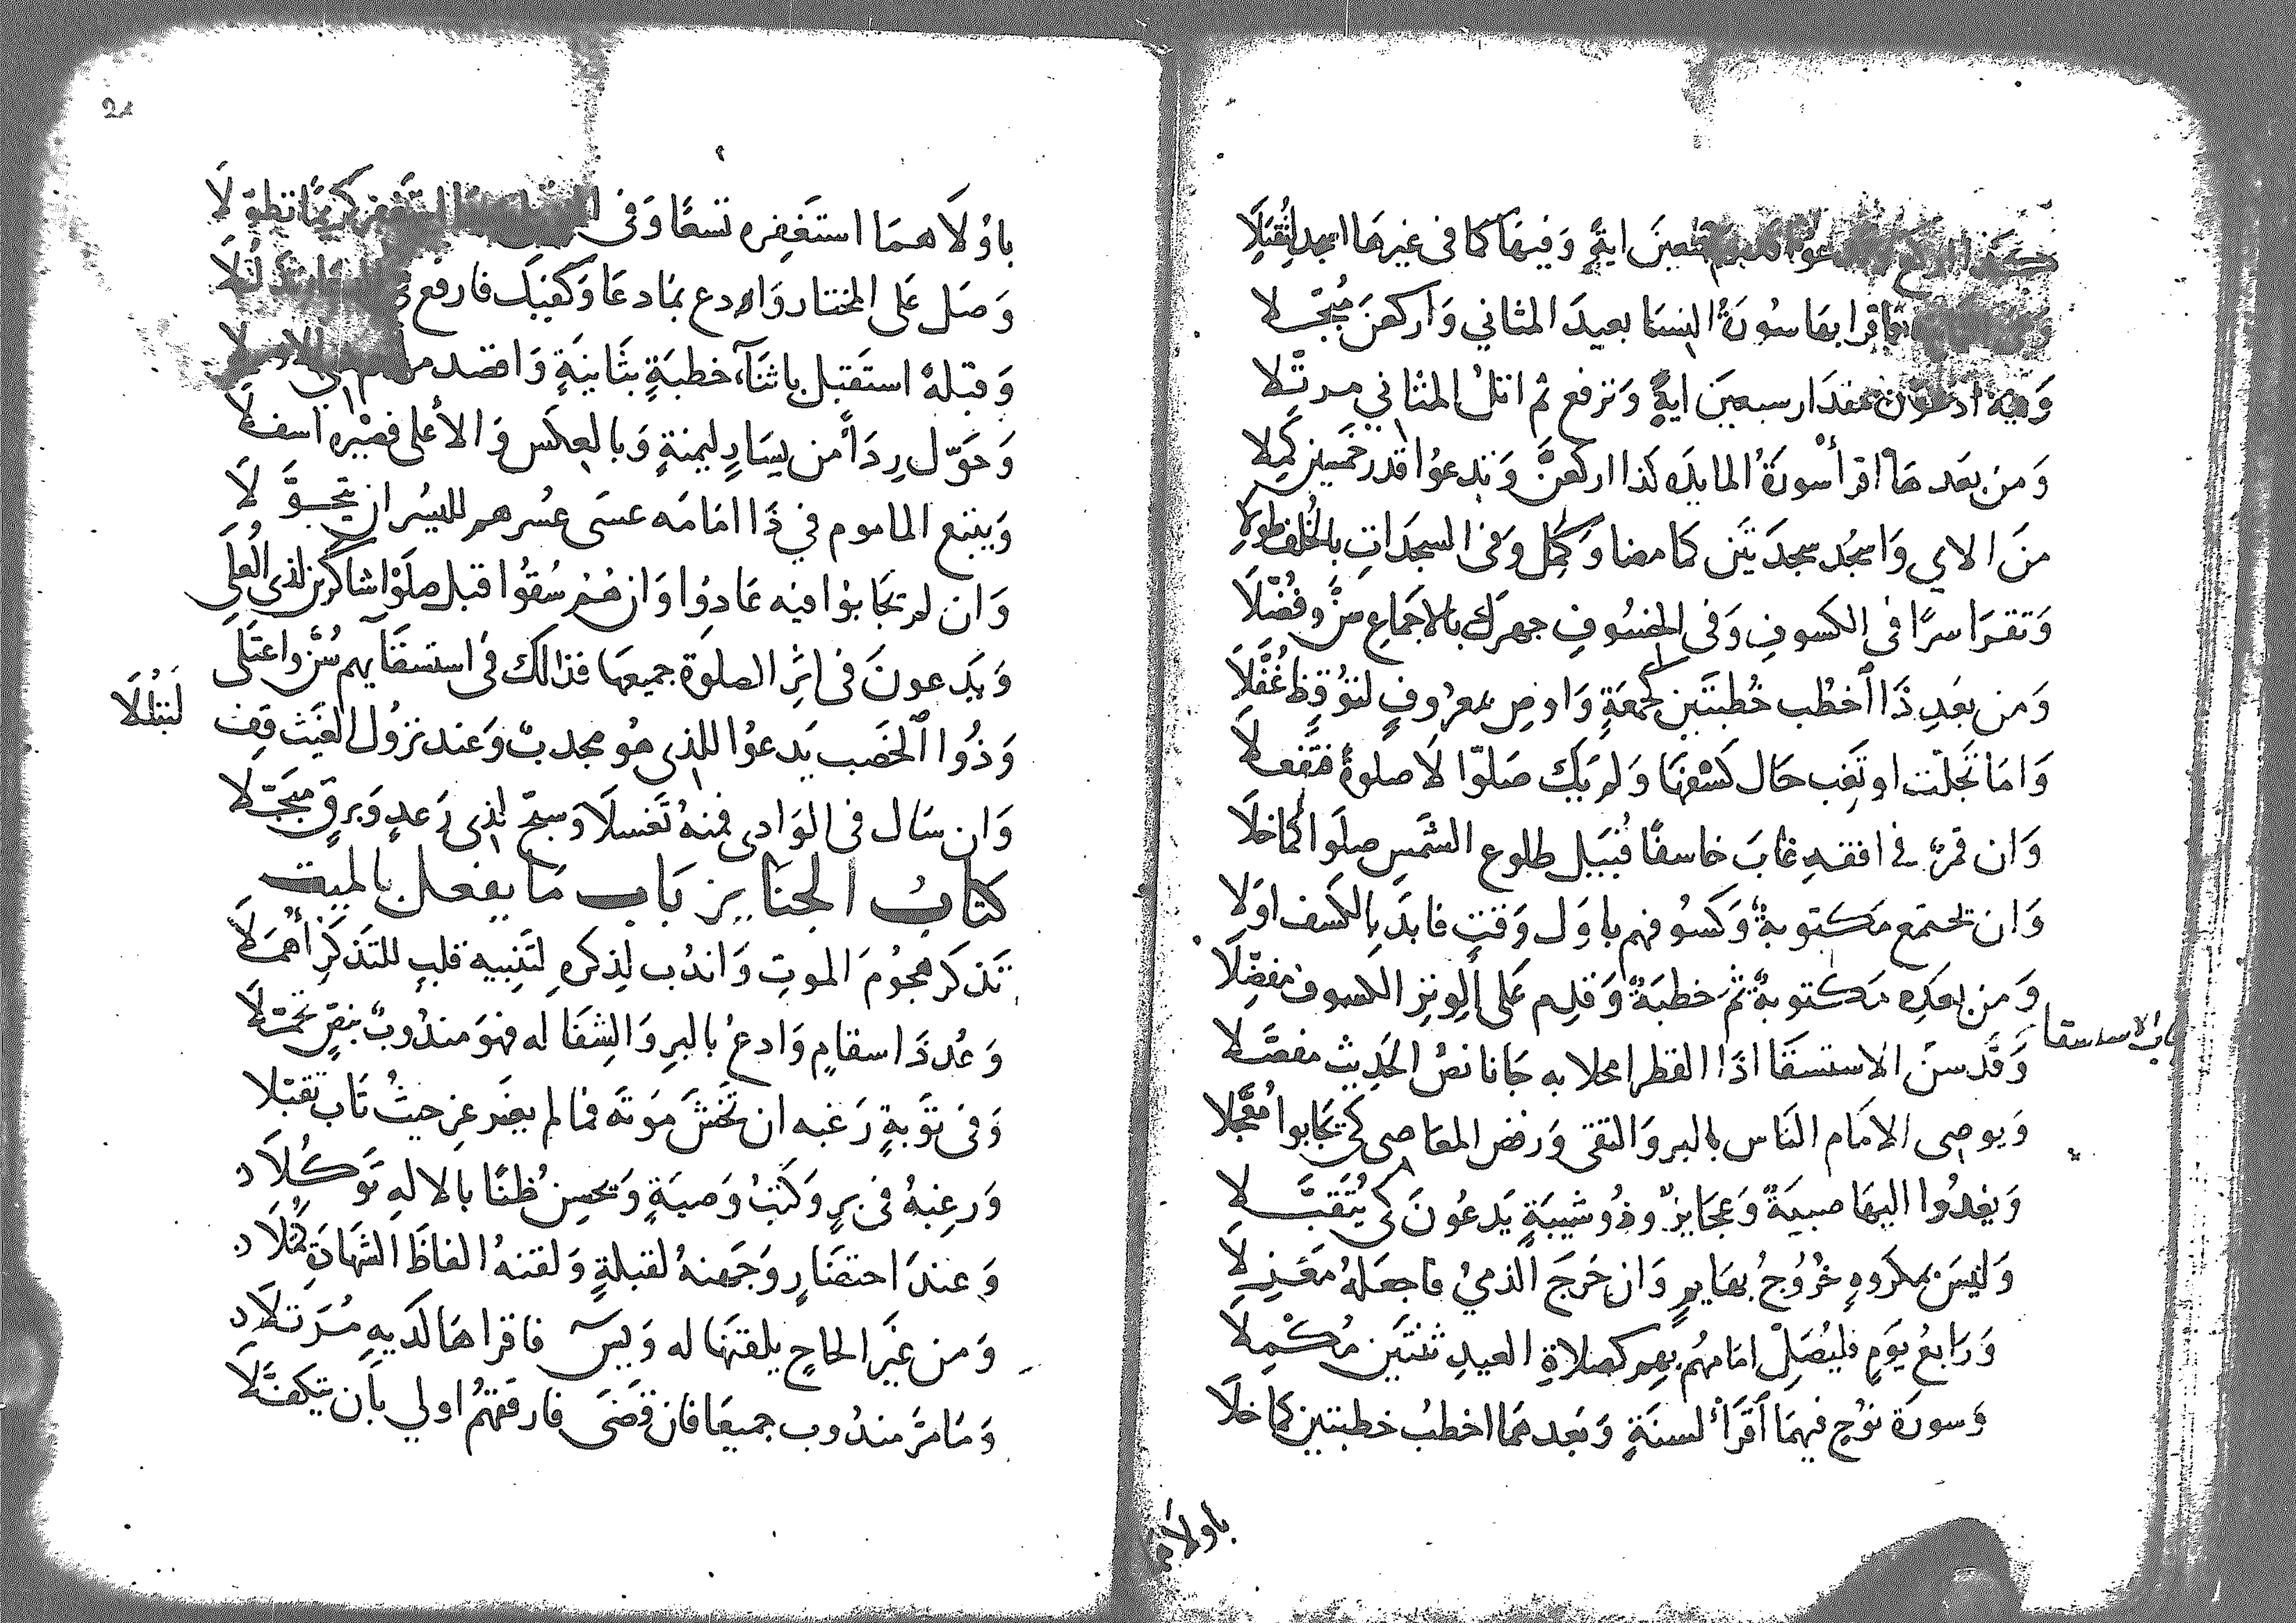 اية وَفيهَا كما فى غيرهَا اسجد لتُقبَلاَ
اقرا بهَا سُورَةُ النسَا بعيدَ المثاني وَاركعَن مُبَجّلا
مقدَار سبعينَ ايةً وَترفع ثم اتلُ المثاني مرتّلا
وَمن بعَدهَا اقرأ سُورَةُ المايده كذا اركعَنَّ وَتدعوُا قدر خمسين كمِلا
منَ الاي وَاسجُد سجدَتَين كما مضا وَكمّل وَفى السجدَاتِ بالخُلف طولا
وَتقرَا سرًا فى الكسوفِ وَفى الخسُوفِ جهرك بالاجمَاعِ سنَّ وفُضّلاَ
وَمن بعَدِ ذَا اخطُب خُطبتَين كجمعَةٍ وَاوص بمعرُوفٍ لتوُقِظ غُفَّلاَ
وَامَا تجَلّت او تغِب حَال كسْفهَا وَلم يَك صَلوّا لاَ صلوةً فتَفعلاَ
وَان قمرٌ فى افقهِ غابَ خاسفًا قُبَيل طلوع الشَمسِ صلوا كما خلاَ
وَان تجتمع مَكتوبةٌ وَكسُوفهم باوَل وَقتٍ فابدَ بالكسف اوَلا
وَمن بعَدِه مَكتوبةٌ ثمَ خطبَةٌ وَقدِم عَلى الوِتِر الكسوف مفضِّلاَ
باب الاستسقا
وَقَد سنَّ الاستسقَا اذَا القطر امحلا به جَانا نصُ الحَدِيث مفصَّلا
وَيوصى الامَام النَاس بالبر وَالتقى وَرفض المعَاصى كي تجَابوا مُعَّجلا
وَيغدُوا اليهَا صبيَةٌ وَعجَايزٌ وذُو شيبَةٍ يَدعُونَ كى يُتَقبَّلا
وَليسَ بمكروهٍ خُرُوجُ بهَايمٍ وَان خَرجَ الذميُ فاجعَلهُ مَعزِلاَ
وَرَابعُ يَومٍ فليُصَلِّ امَامهُم بهِم كصلاةِ العيدِ ثنتَين مُكمِلاَ
وَسورَة نوُحٍ فيهمَا اقرَأ لسنَةٍ وَبَعدهمَا اخطبُ خطبتين كما خلاَ
باولاهما
باوُلاَهمَا استغَفِره تسعًا وَفى
وَصَل عَلى المختَار وَادع بمَا دعَا وَكفيَك فارفع
وَقبلهْ استَقبل باثنَآءِ خطبَةٍ بثَانيَةٍ وَاقصد
وَحَوّل رِدَاً من يسَارٍ ليمنةٍ وَبالعِكَس وَالأعلى فصيّره اسفلاَ
وَيتبع الماموم في ذَا امَامَه عسَى عسُرهم لليسُر ان يتحَوَّلاَ
وَان لم يجَابوُا فيه عَادوُا وَان هُمْ سُقوُا قبل صلَوْا شاكرين لذى العُلَى
وَيَدعونَ فى اثرِ الصلوَة جميعهَا فذالك فى استسقَآيهم سُنَّ وَاعتَلى
وَذُوا الخصَب يَدعوُا للذى هوُ مجدبٌ وَعند نزوُل الغَيث قِف لتَبتُلاَ
وَان سَال فى الوَادى فمنهُ تَغسلاَ وَسبحّ لذى رَعدٍ وَبرقٍ مبَجّلا
كتابُ الجنَايز بَاب مَا يفعل بالميت
تَذكرَ هجوُمَ الموتِ وَاندُب لِذِكرهِ لتَنبيه قلبٍ للتذكرِ أهمَلاَ
وَعُد ذَا اسقامٍ وَادعُ بالبرِ وَالشِفَا له فهوَ مندُوبٌ بنصٍّ تحمّلاَ
وَفى توَبةٍ رَغبه ان تخَشَ مَوتَه فما لم يغَرغِر حيثُ تَاب تقبّلا
وَرغِبهُ فى برٍ وَكَتبُ وَصيَةٍ وَتحسِن ظنًا بالالهِ تَوَكُلاَ
وَعندَ احتضَارٍ وَجّهنهُ لقبلةٍ وَلقنهُ الفاظَ الشهَادَةِ كمّلاَ
وَمن غيَر الحَاحٍ يلقنهَا له وَيسَ فاقراهَا لَديهِ مُرَتلاَ
وَمَا مرَّ مندُوب جميعَا فان قضَى فارفقهُم اولي بأَن يتكفَّلاَ